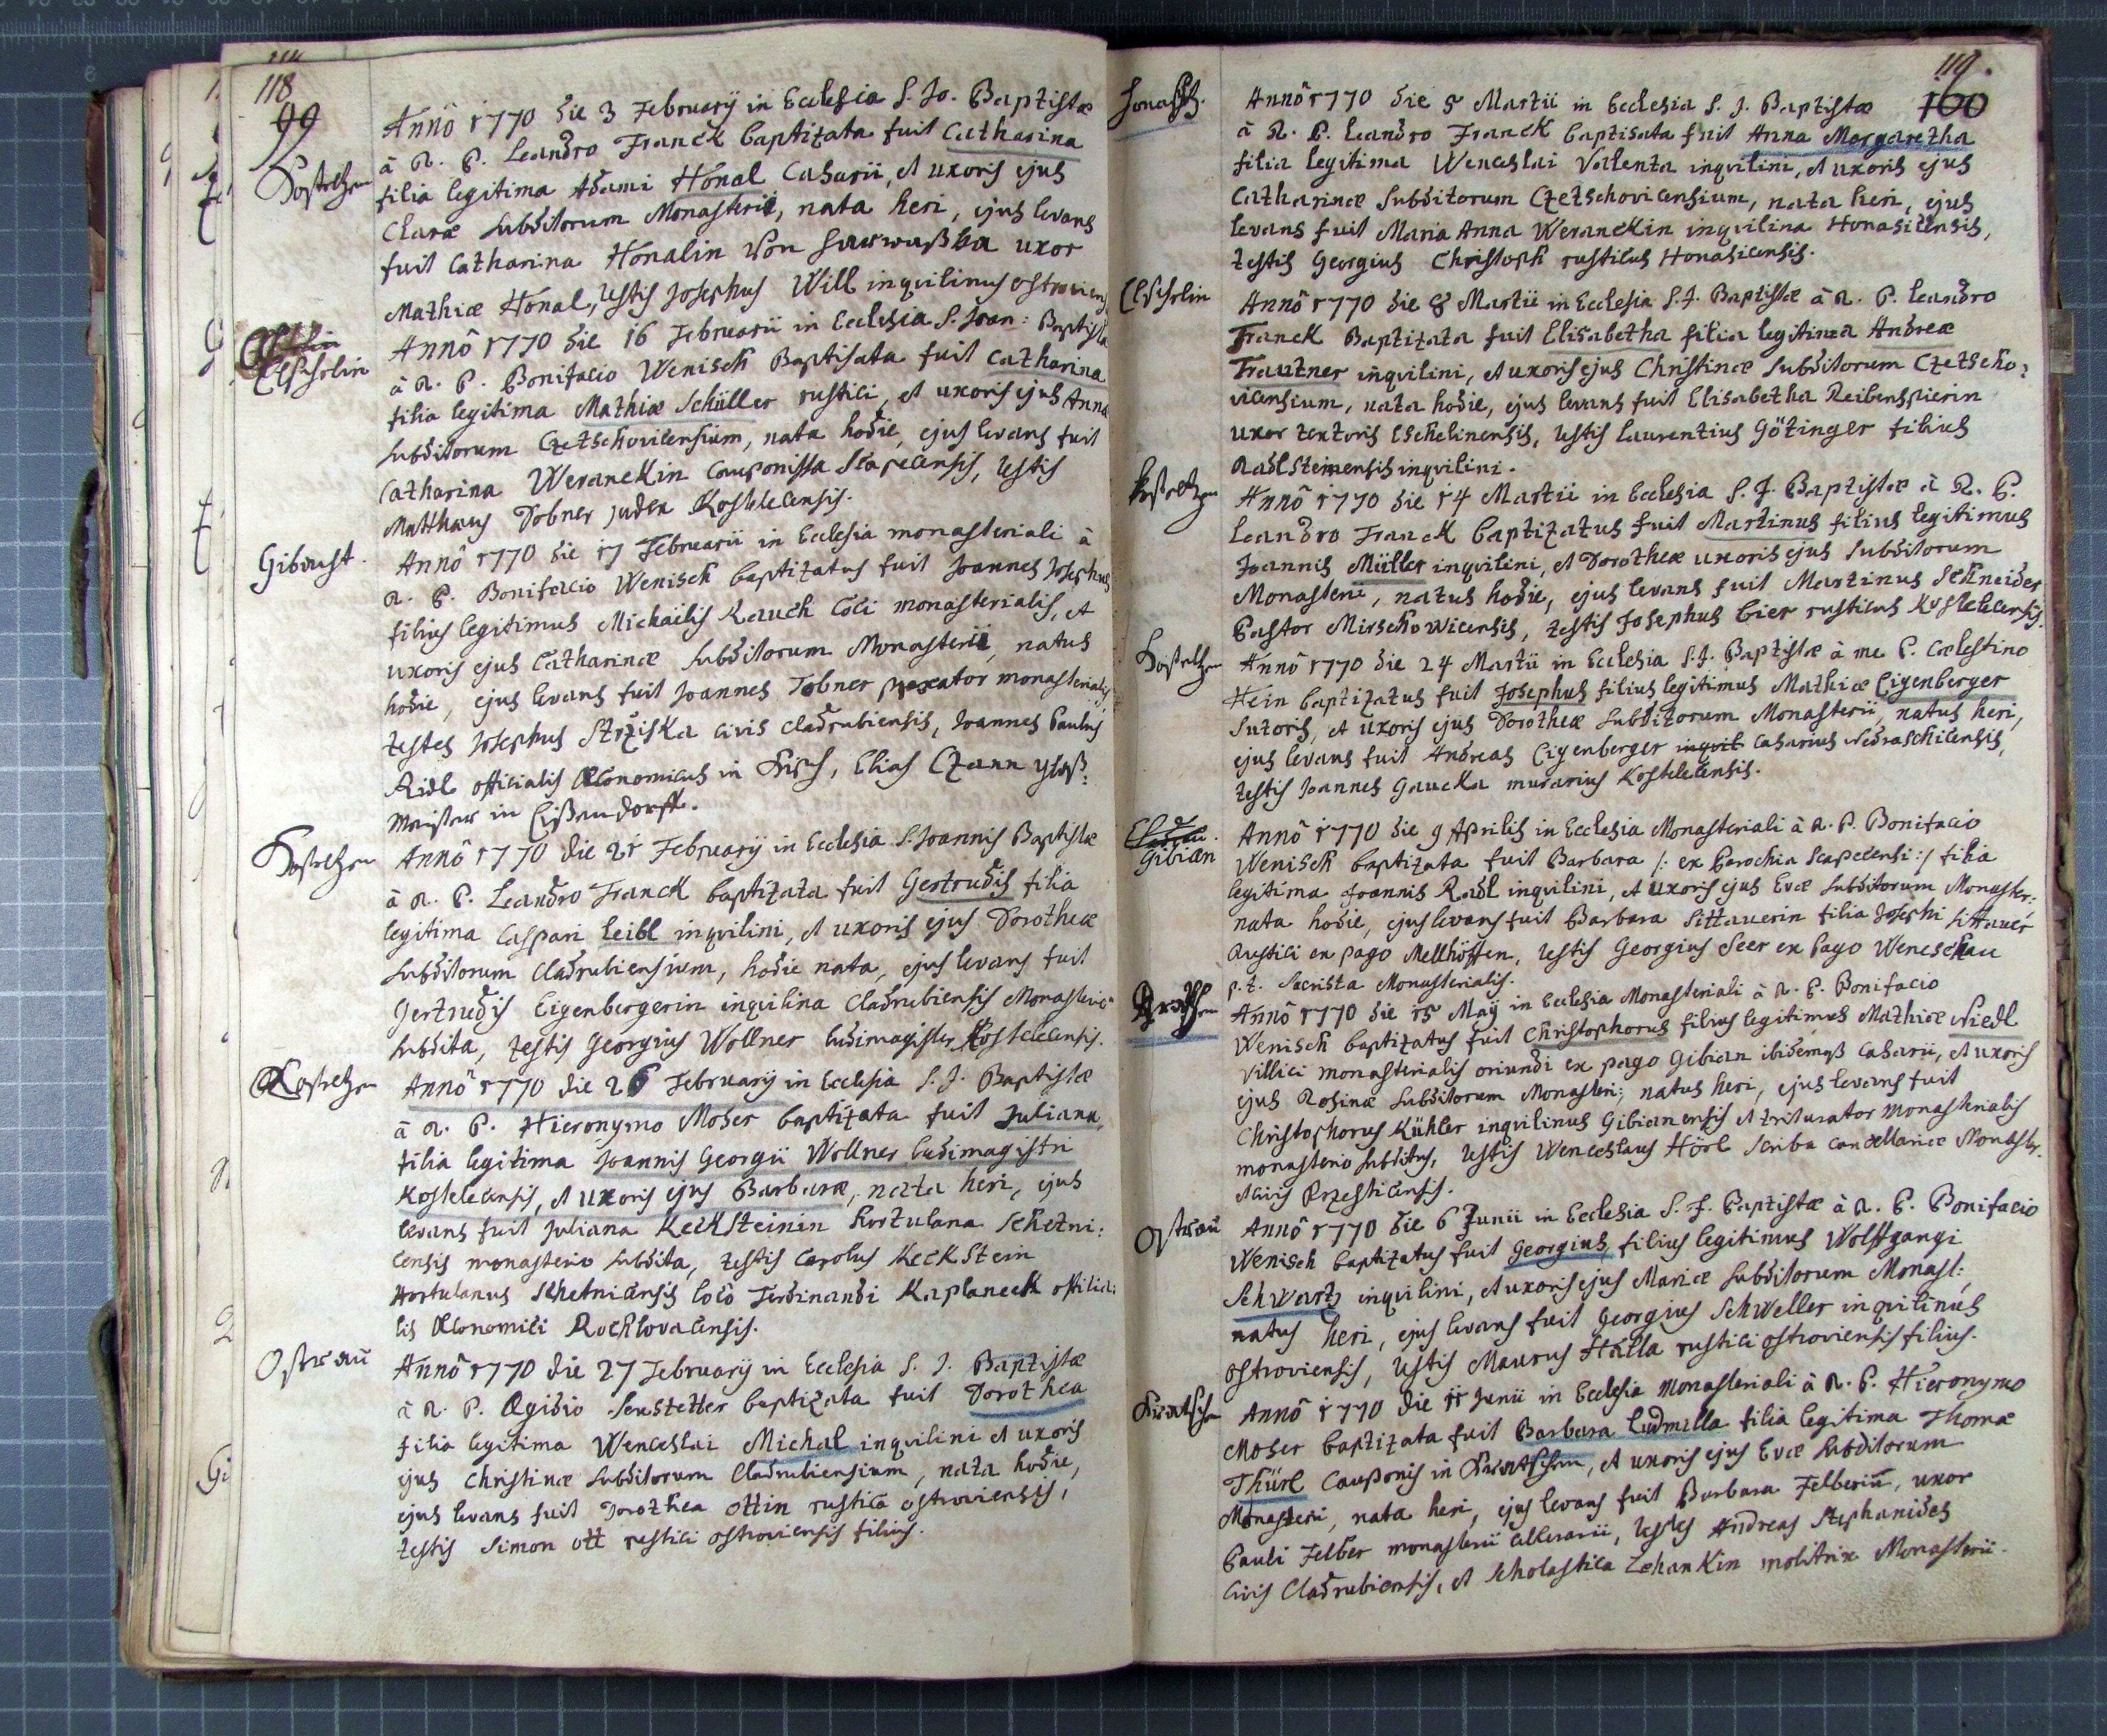 118
99
Kostelzen
Annô 1770 die 3 Februarÿ in Ecclesia S. Jo. Baptistæ
à R. P. Leandro Franck baptizata fuit Catharina
filia legitima Adami Honal Casarii, et uxoris ejus
Claræ subditorum Monasterii, nata heri, ejus levans
fuit Catharina Honalin von uxor
Mathiæ Honal, testis Josephus Will inqvilinus ostroviens
Elschelin
Annô 1770 die 16 Februarii in Ecclesia S. Joan: Baptistæ
à R. P. Bonifacio Wenisch Baptisata fuit Catharina
filia legitima Mathiæ Schüller rustici, et uxoris ejus Annæ
subditorum Czetschovicensium, nata hodie, ejus levans fuit
Catharina Weranekin Cauponissa Scapecensis, testis
Matthæus Dobner judex Kostelecensis.
Gibaust.
Annô 1770 die 17 Februarii in Ecclesia monasteriali à
R. P. Bonifacio Wenisch baptizatus fuit Joannes Josephus
filius legitimus Michaëlis Rauch Coci monasterialis, et
uxoris ejus Catharinæ subditorum Monasterii, natus
hodie, ejus levans fuit Joannes Tobner pexator monasterialis,
testes Josephus Stržiska civis Cladrubiensis, Joannes Paulus
Ridl officialis Œconomicus in , Elias Czann glaß:
Meister in Eißendorff.
Kostelzen
Annô 1770 die 21 Februarÿ in Ecclesia S. Joannis Baptistæ
à R. P. Leandro Franck baptizata fuit Gertrudis filia
legitima Caspari Leibl inqvilini, et uxoris ejus Dorotheæ
subditorum Cladrubiensium, hodie nata, ejus levans fuit
Gertrudis Eigenbergerin inqvilina Cladrubiensis Monasterio
subdita, testis Georgius Wollner ludimagister Kostelecensis.
Kostelzen
Annô 1770 die 26 Februarÿ in Ecclesia S. J. Baptistæ
à R. P. Hieronymo Moser baptizata fuit Juliana,
filia legitima Joannis Georgii Wollner ludimagistri
Kostelecensis, et uxoris ejus Barbaræ, nata heri, ejus
levans fuit Juliana Kecksteinin hortulana Schetni:
censis monasterio subdita, testis Carolus Keckstein
Hortulanus Schetnicensis locô Ferdinandi Kaplaneck officia:
lis Œconomici Rochlovacensis.
Ostrau
Annô 1770 die 27 Februarÿ in Ecclesia S. J. Baptistæ
à R. P. Ægidio Senstetter baptizata fuit Dorothea
filia legitima Wenceslai Michal inqvilini et uxoris
ejus Christinæ subditorum Cladrubiensium, nata hodie,
ejus levans fuit Dorothea Ottin rustica ostroviensis,
testis Simon Ott rustici ostroviensis filius.
119.
100
Honositz.
Annô 1770 die 5 Martii in Ecclesia S. J. Baptistæ
à R. P. Leandro Franck baptisata fuit Anna Margaretha
filia legitima Wenceslai Valenta inqvilini, et uxoris ejus
Catharinæ subditorum Czetschovicensium, nata heri, ejus
levans fuit Maria Anna Weranekin inqvilina Honasicensis,
testis Georgius Christoph rusticus Honasicensis.
Elschelin
Annô 1770 die 8 Martii in Ecclesia S. J. Baptistæ à R. P. Leandro
Franck Baptizata fuit Elisabetha filia legitima Andreæ
Trautner inqvilini, et uxoris ejus Christinæ subditorum Czetscho:
vicensium, nata hodie, ejus levans fuit Elisabetha Reibenspierin
uxor textoris Eschelinensis, testis Laurentius Götzinger filius
Radlsteinensis inqvilini.
Kostelzen
Annô 1770 die 14 Martii in Ecclesia S. J. Baptistæ à R. P.
Leandro Franck baptizatus fuit Martinus filius legitimus
Joannis Müller inqvilini, et Dorotheæ uxoris ejus subditorum
Monasterii, natus hodie, ejus levans fuit Martinus Schneider
Pastor Mirschowicensis, testis Josephus bier rusticus Kostelecensis.
Kostelzen
Annô 1770 die 24 Martii in Ecclesia S. J. Baptistæ à me P. Cœlestino
Hein baptizatus fuit Josephus filius legitimus Mathiæ Eigenberger
Sutoris, et uxoris ejus Dorotheæ subditorum Monasterii, natus heri,
ejus levans fuit Andreas Eigenberger inqvil casarius Nedraschicensis,
testis Joannes Gaucka murarius Kostelecensis.
Gibian
Annô 1770 die 9 Aprilis in Ecclesia Monasteriali à R. P. Bonifacio
Wenisch baptizata fuit Barbara /: ex Parochia Scapecensi :/ filia
legitima Joannis Radl inqvilini, et uxoris ejus Evæ subditorum Monaster:
nata hodie, ejus levans fuit Barbara Sittauerin filia Josephi Sittauer
Rustici ex pago Mellhöffen, testis Georgius Seer ex pago Weneschau
p. t. Sacrista Monasterialis.
Annô 1770 die 15 Maÿ in Ecclesia Monasteriali à R. P. Bonifacio
Wenisch baptizatus fuit Christophorus filius legitimus Mathiæ Niedl
Villici monasterialis oriundi ex pago Gibian ibidemq Casarii, et uxoris
ejus Rosinæ subditorum Monasteri:, natus heri, ejus levans fuit
Christophorus Kühler inqvilinus Gibianensis et triturator monasterialis
monasterio subditus, testis Wenceslaus Hörl scriba cancellariæ Monaster.
et civis Przesticensis.
Ostrau
Annô 1770 die 6 Junii in Ecclesia S. J. Baptistæ à R. P. Bonifacio
Wenisch baptizatus fuit Georgius, filius legitimus Wolffgangi
Schwartz inqvilini, et uxoris ejus Mariæ subditorum Monast:,
natus heri, ejus levans fuit Georgius Schweller inqvilinus
ostroviensis, testis Maurus Halla rustici ostroviensis filius.
Annô 1770 die 11 Junii in Ecclesia Monasteriali à R. P. Hieronymo
Moser baptizata fuit Barbara Ludmilla filia legitima Thomæ
Thürl Cauponis in , et uxoris ejus Evæ subditorum
Monasterii, nata heri, ejus levans fuit Barbara Felberin, uxor
Pauli Felber monasterii cellerarii, testes Andreas Stephanides
civis Cladrubiensis, et Scholastica Zehankin molitrix Monasterii.